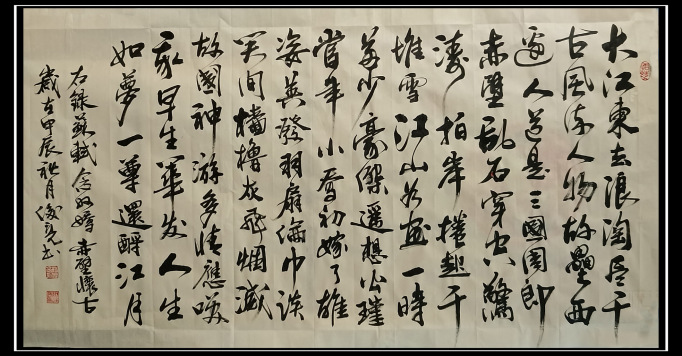 大江東去浪淘尽千
古風流人物故壘西
邊人道是三國周郎
赤壁亂石穿空驚
濤拍岸捲起千
堆雪江山如画一時
多少豪傑遥想公瑾
當年小喬初嫁了雄
姿英發羽扇綸巾談
笑间檣櫓灰飛烟滅
故國神游多情應笑
我早生華发人生
如夢一尊還酹江月
右録蘇軾念奴嬌赤壁懷古
歲在甲辰秋月俊亮书